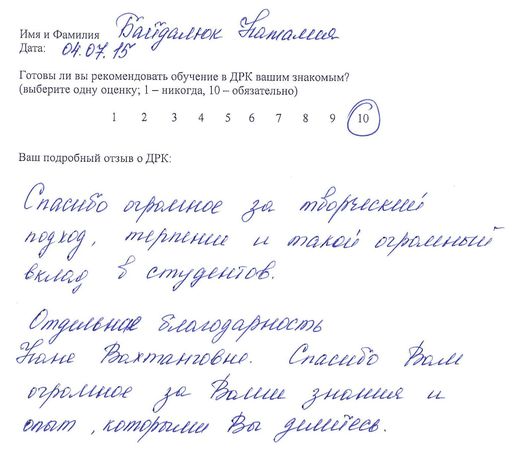 Имя и Фамилия Байдалюк Наталия
Дата: 04.07.15
Готовы ли вы рекомендовать обучение в ДРК вашим знакомым?
(выберите одну оценку; 1 – никогда, 10 – обязательно)
1 2 3 4 5 6 7 8 9 10
Ваш подробный отзыв о ДРК:
Спасибо огромное за творческий
подход, терпение и такой огромный
вклад в студентов.
Отдельная благодарность
Нане Вахтанговне. Спасибо Вам
огромное за Ваши знания и
опыт, которыми Вы делитесь.